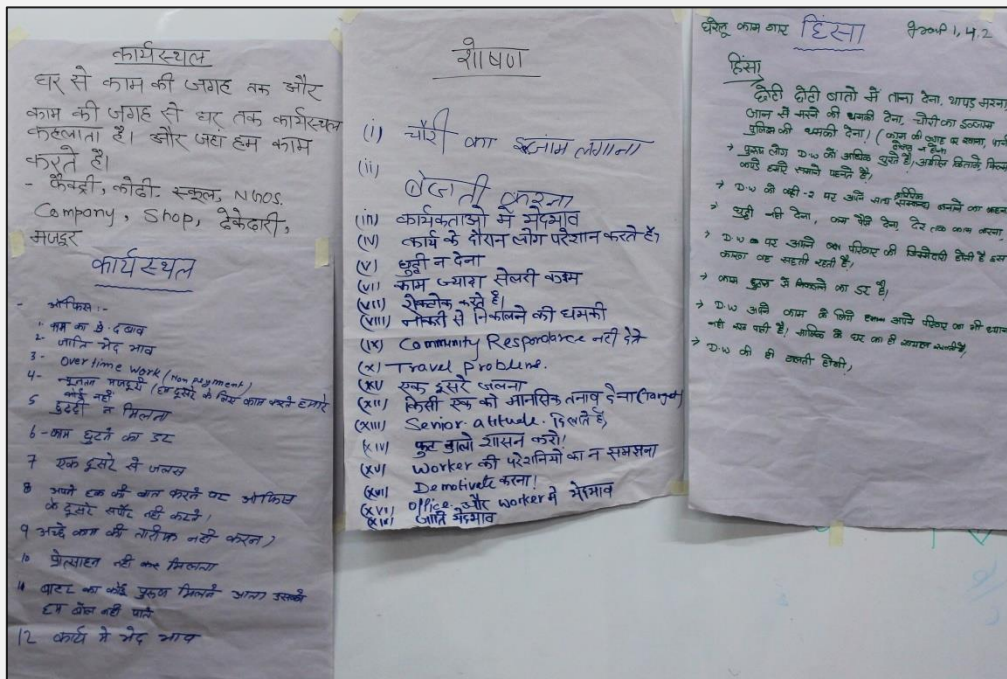 कार्यस्थल
घर से काम की जगह तक और
काम की जगह से घर तक कार्यस्थल
कहलाता है। और जहां हम काम
करते है।
- फैक्ट्री, कोठी, स्कूल, NGOs.
Company, Shop, ठेकेदारी,
मजदूर
कार्यस्थल
- ऑफिस :-
1. काम का दबाव
2 - जाति भेद भाव
3 - Over time work (Non payment)
4 - न्यूनतम मजदूरी (हम दूसरे के लिए काम करते हमारे
कोई नहीं
5 छुट्टी न मिलना
6 - काम छुटने का डर
7 एक दूसरे से जलन
8 अपने हक की बात करने पर ऑफिस
के दूसरे सपोर्ट नहीं करते।
9 अच्छे काम की तारीफ नहीं करना
10 प्रोत्साहन नहीं मिलना
11 बाहर का कोई पुरुष मिलने आता उसको
हम बोल नहीं पाते
12 कार्य मे भेद भाव
शोषण
(i) चोरी का इल्जाम लगाना
(ii) बेजती करना
(iii) कार्यकताओ में भेदभाव
(iv) कार्य के दौरान लोग परेशान करते है,
(v) छुट्टी न देना
(vi) काम ज्यादा सेलरी कम
(vii) रोकटोक करते है।
(viii) नौकरी से निकालने की धमकी
(ix) Community Respondance नही देते
(x) Travel problems.
(xv) एक दूसरे जलना
(xii) किसी एक को मानसिक तनाव देना (Target)
(xiii) Senior. atitude. दिखाते है,
(xiv) फुट डालो शासन करो।
(xv) Worker की परेशनियों का न समझना
(xvi) Demotivate करना।
(xvi) office. और worker मे भेदभाव
जाति भेदभाव
घरेलू काम गार हिंसा group 1, 4. 2
हिंसा
छोटी छोटी बातो में ताना देना, थापड़ मारना,
जान से मारने की धमकी देना, चोरी का इल्जाम
पुलिस की धमकी देना। (काम की जगह पर खाना, पानी
→ पुरुष लोग D.W को अधिक घूरते है, अश्लील किताबे,
कपड़े हमारे सामने पहनते है,
→ D.W को कही - 2 पर अपने साथ शारीरिक सम्बन्ध बनाने का
→ छुट्टी नही देना, कम पैसे देना, देर तक काम करना
→ D.W पर अपने परिवार की जिम्मेदारी होती है इस
कारण वह सहती रहती है।
→ काम छुटने से निकालने का डर है,
→ D.W अपने काम के लिये अपने परिवार का भी ध्यान
नही रख पाती है। मालिक के घर का ही
→ D.W की ही गलती होगी,